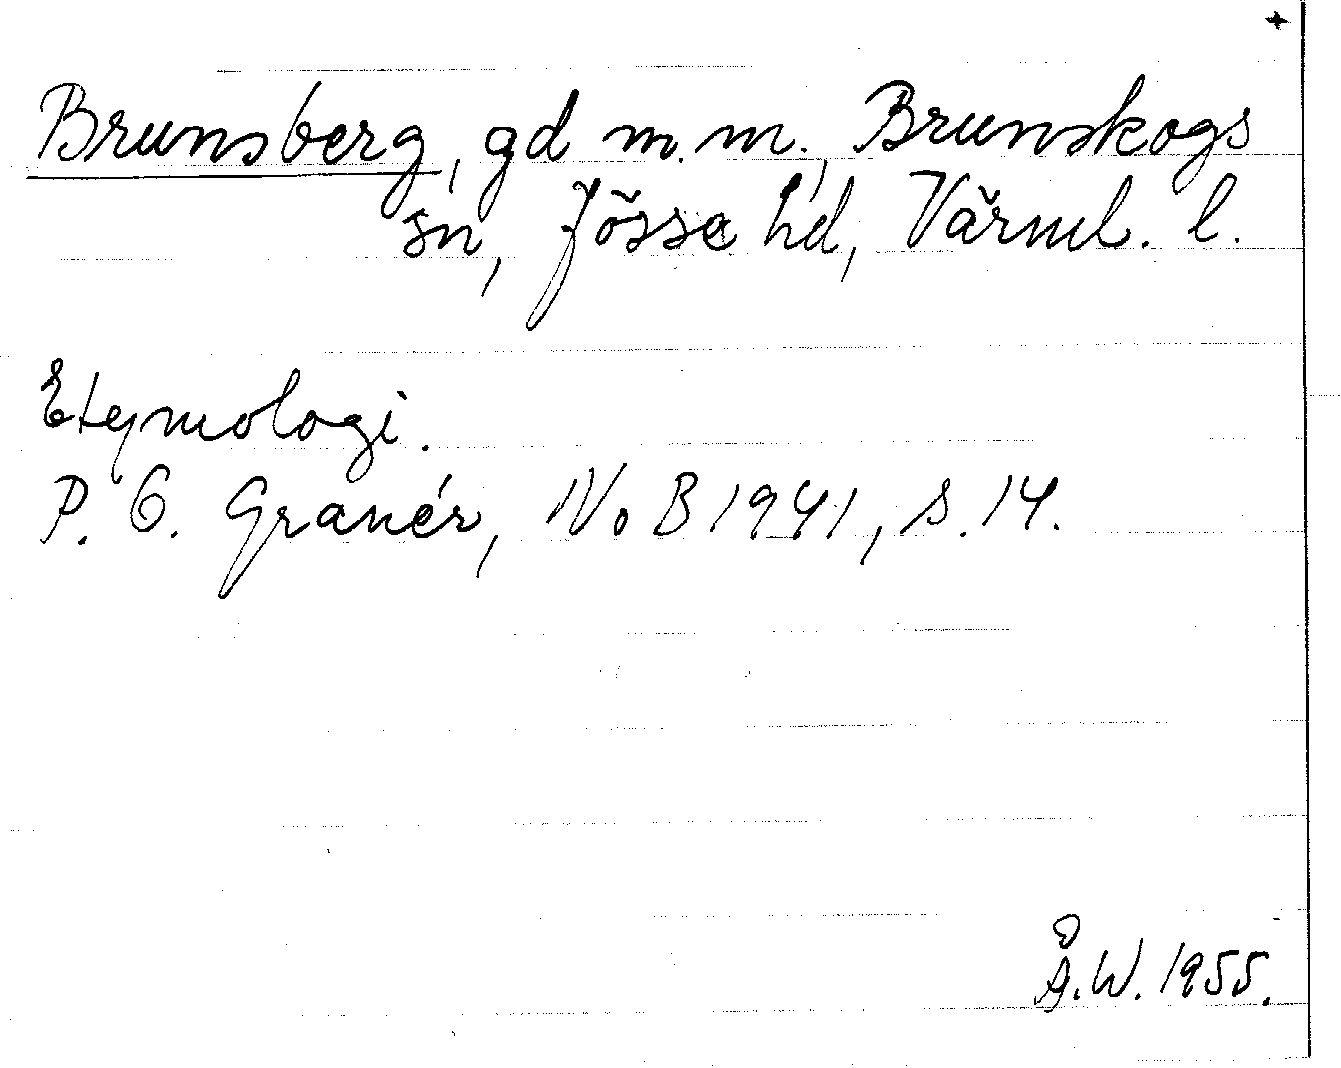 Brunsberg, gd m.m., Brunskogs
sn, Jösse hd, Värml. l.
Etymologi.
P. G. Granér, NoB 1941, s. 14.
Å.W. 1955.